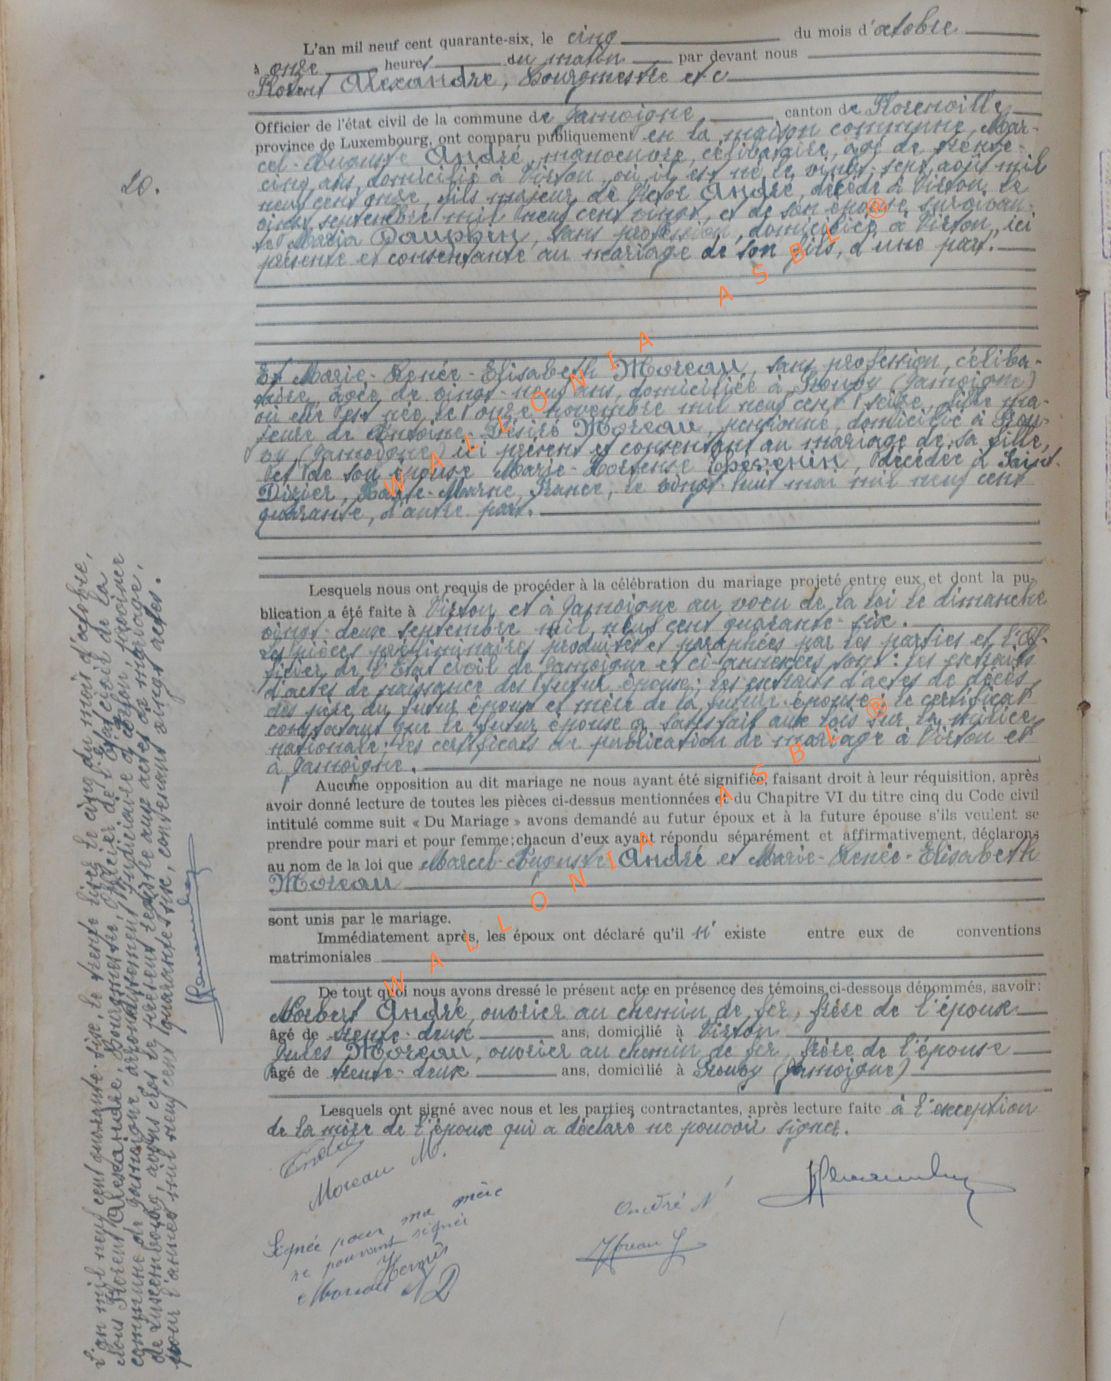 L'an mil neuf cent quarante-six, le cinq du mois d'octobre
à onze heures du matin par devant nous
Florent Alexandre, Bourgmestre et
Officier de l'état civil de la commune de Jamoigne canton de Florenville
province de Luxembourg, ont comparu publiquement en la maison commune, Mar-
cel-Auguste André, manoeuvre, célibataire, âgé de trente-
cinq ans, domicilié à Virton, où il est né le vingt-sept août mil
neuf cent onze, fils majeur de Victor André, décédé à Virton, le
vingt septembre mil neuf cent vingt, et de son épouse survivan-
te Maria Dauphin, sans profession, domiciliée à Virton, ici
présente et consentante au mariage de son fils, d'une part.
Et Marie-Renée-Elisabeth Moreau, sans profession, céliba-
taire, âgée de vingt-neuf ans, domiciliée à Prouvy (Jamoigne)
où elle est née, le onze novembre mil neuf cent seize, fille ma-
jeure de Antoine-Désiré Moreau, pensionné, domicilié à Prou-
vy (Jamoigne) ici présent et consentant au mariage de sa fille,
et de son épouse Marie-Hortense Thévenin, décédée à Saint-
Dizier, Haute-Marne, France, le vingt-huit mai mil neuf cent
quarante, d'autre part.
Lesquels nous ont requis de procéder à la célébration du mariage projeté entre eux et dont la pu-
blication a été faite à Virton et à Jamoigne au voeu de la loi le dimanche
vingt-deux septembre mil neuf cent quarante-six.
Les pièces préliminaires produites et paraphées par les parties et l'Of-
ficier de l'Etat civil de Jamoigne et ci-annexées sont: les extraits
d'actes de naissance des futurs époux; les extraits d'actes de décès
des père du futur époux et mère de la future épouse; le certificat
constatant que le futur époux a satisfait aux lois sur la milice
nationale; les certificats de publication de mariage à Virton et
à Jamoigne.
Aucune opposition au dit mariage ne nous ayant été signifiée, faisant droit à leur réquisition, après
avoir donné lecture de toutes les pièces ci-dessus mentionnées et du Chapitre VI du titre cinq du Code civil
intitulé comme suit « Du Mariage » avons demandé au futur époux et à la future épouse s'ils veulent se
prendre pour mari et pour femme; chacun d'eux ayant répondu séparément et affirmativement, déclarons
au nom de la loi que Marcel-Auguste André et Marie-Renée-Elisabeth
Moreau
sont unis par le mariage.
Immédiatement après, les époux ont déclaré qu'il n'existe entre eux de conventions
matrimoniales
De tout quoi nous avons dressé le présent acte en présence des témoins ci-dessous dénommés, savoir:
Norbert André, ouvrier au chemin de fer, frère de l'époux
âgé de trente-deux ans, domicilié à Virton
Jules Moreau, ouvrier au chemin de fer, frère de l'épouse
âgé de trente-deux ans, domicilié à Prouvy (Jamoigne)
Lesquels ont signé avec nous et les parties contractantes, après lecture faite à l'exception
de la mère de l'époux qui a déclaré ne pouvoir signer.
André
Moreau M.
Signée pour ma mère
ne pouvant signée
André N
Moreau J
20.
L'an mil neuf cent quarante-six, le trente
Nous Florent Alexandre, Bourgmestre, Officier de l'état civil de la
commune de Jamoigne, arrondissement judiciaire d'Arlon, province
de Luxembourg, avons clos le présent registre aux actes de mariage,
pour l'année mil neuf cent quarante-six, contenant vingt actes.
WALLONIA ASBL ®
WALLONIA ASBL ®